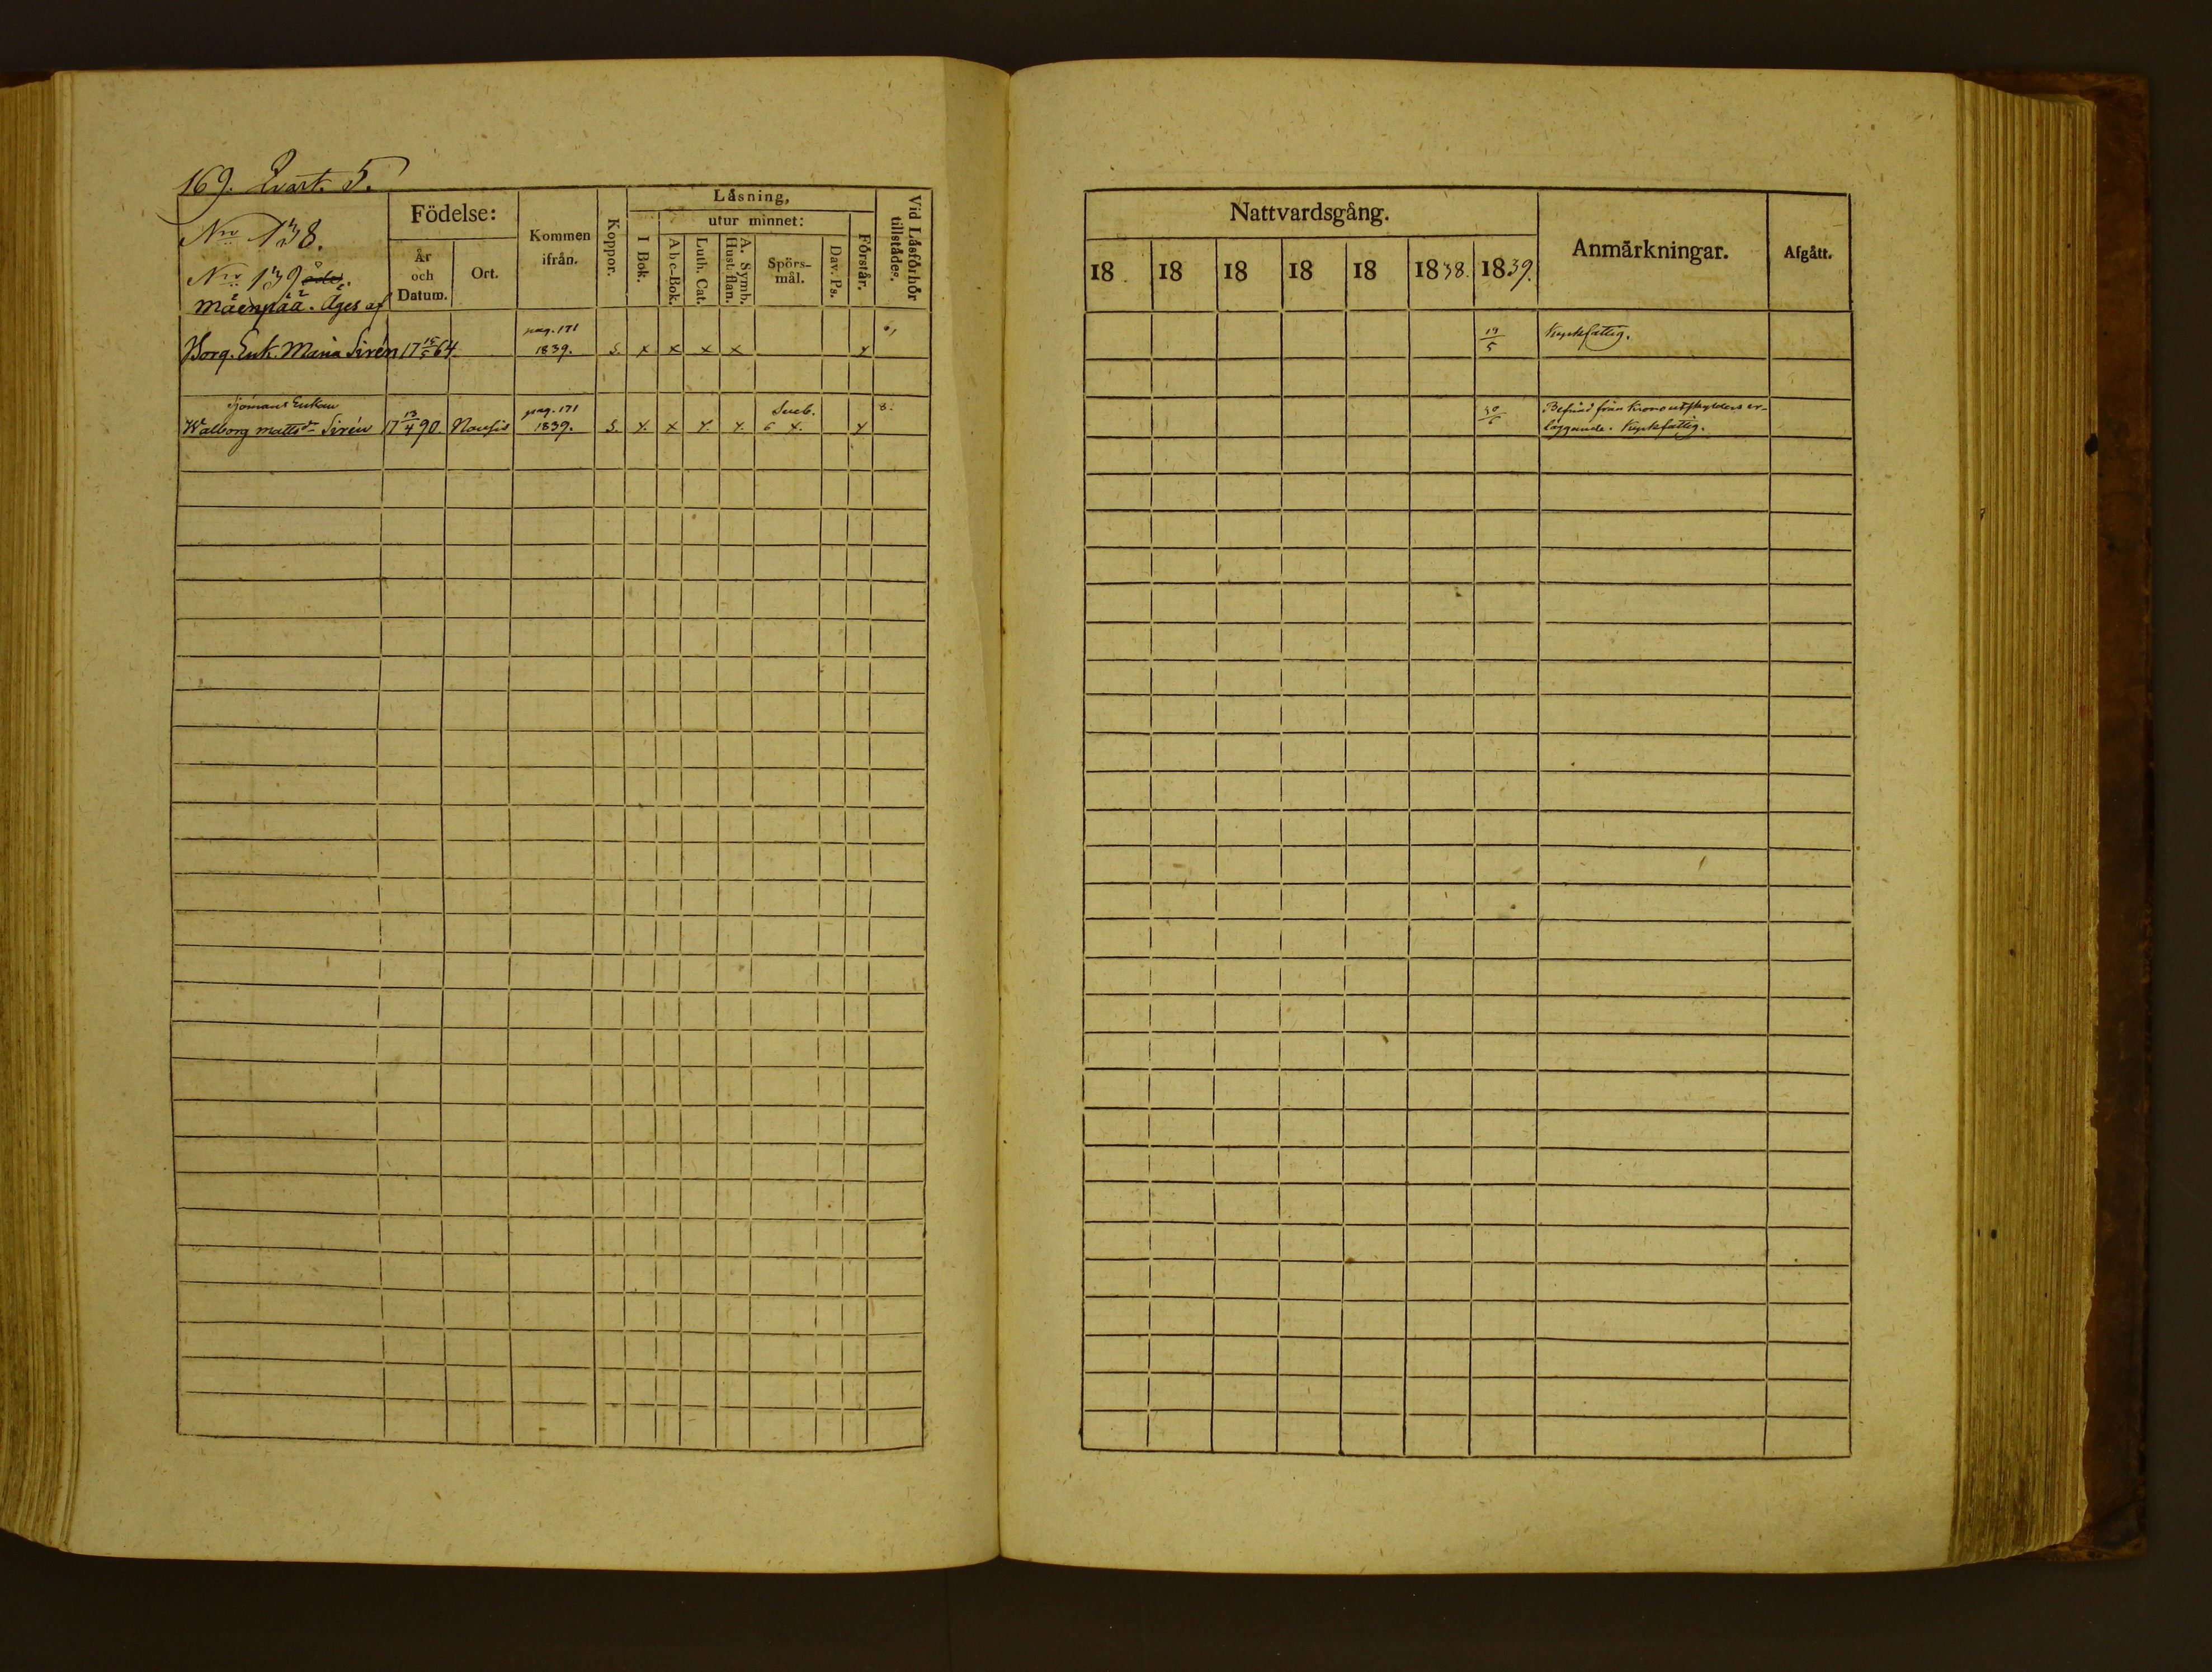 169. Qvart. 5.
Nro 138.
Nro 139 öde.
Mäenpää. Äges af
Födelse:
År och Datum.
Ort.
Kommen ifrån.
Koppor.
Låsning,
utur minnet:
I Bok.
Abc-Bok.
Luth. Cat.
A. Symb. Hust. flan.
Spörs-mål.
Dav. Ps.
Förstår.
Vid Låsförhör tillstådes.
Borg. Enk. Maria Sirén 17 15/5 64 pag. 171 1839. S. x x x x x
Sjömans Enkan
Walborg Mattsdr Sirén 17 13/4 90 Nousis pag. 171 1839. S. x x x x Sveb. 6 x. x 8.
Nattvardsgång.
Anmärkningar.
Afgått.
18 18 18 18 18 1838. 1839.
19/5 Kyrkfattig.
30/6 Befriad från Krono utskylders er-
läggande. Kyrkfattig.